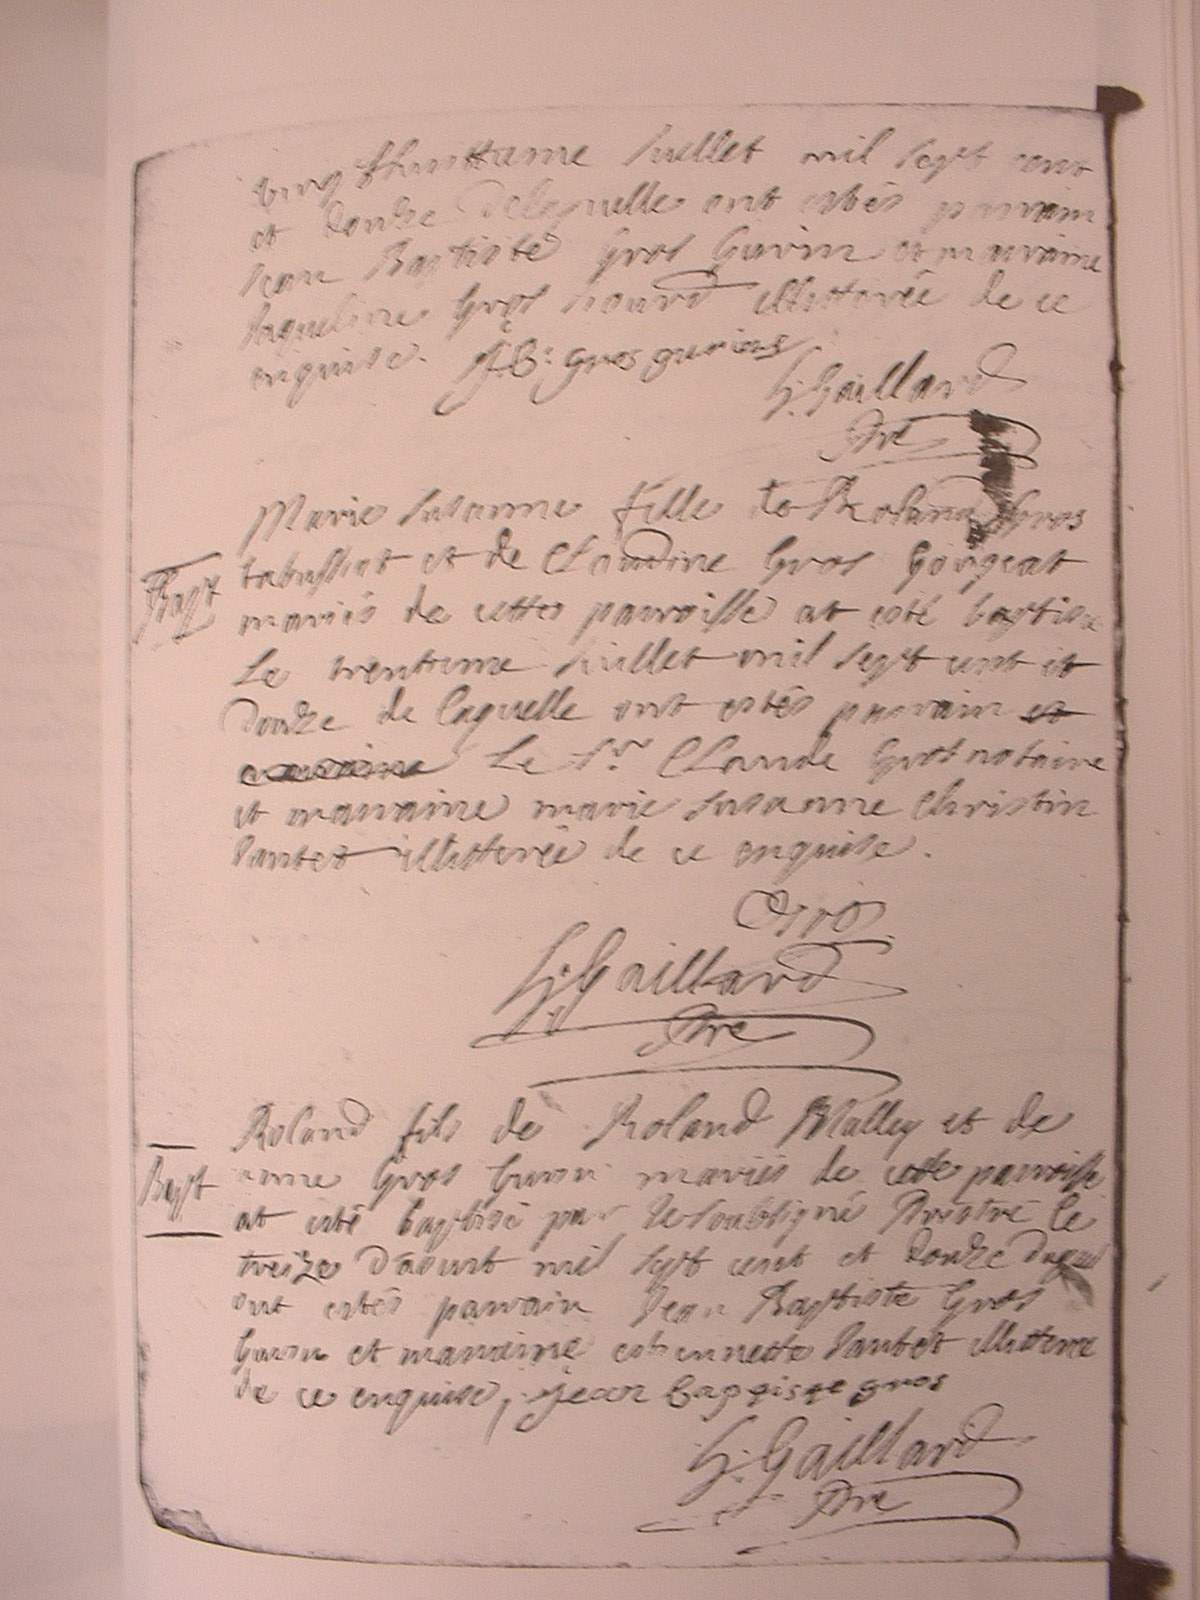 vingt huittieme Juillet mil sept cent
et douze de laquelle ont estés parrain
Jean Baptiste Gros Gurin et marraine
Jaqueline Gros illitterée de ce
enquise. J. B. Gros
G. Gaillard
Pre
Marie Susanne fille de Roland Gros
et de Claudine Gros Gorgeat
Bapt
mariés de cette parroisse at esté baptisée
Le trentieme Juillet mil sept cent et
douze de laquelle ont estés parrain et
Le Sr Claude Gros notaire
et marraine marie Susanne Christin
Pantet illitterée de ce enquise.
Gros
G. Gaillard
Pre
Roland fils de Roland Malley et de
Bapt
anne Gros Gurin mariés de cette parroisse
at esté baptisé par le soubsigné Prestre le
treize D'aoust mil sept cent et douze duquel
ont estés parrain Jean Baptiste Gros
Gurin et marraine estiennette Pantet illitterée
de ce enquise, jean baptiste gros
G. Gaillard
Pre